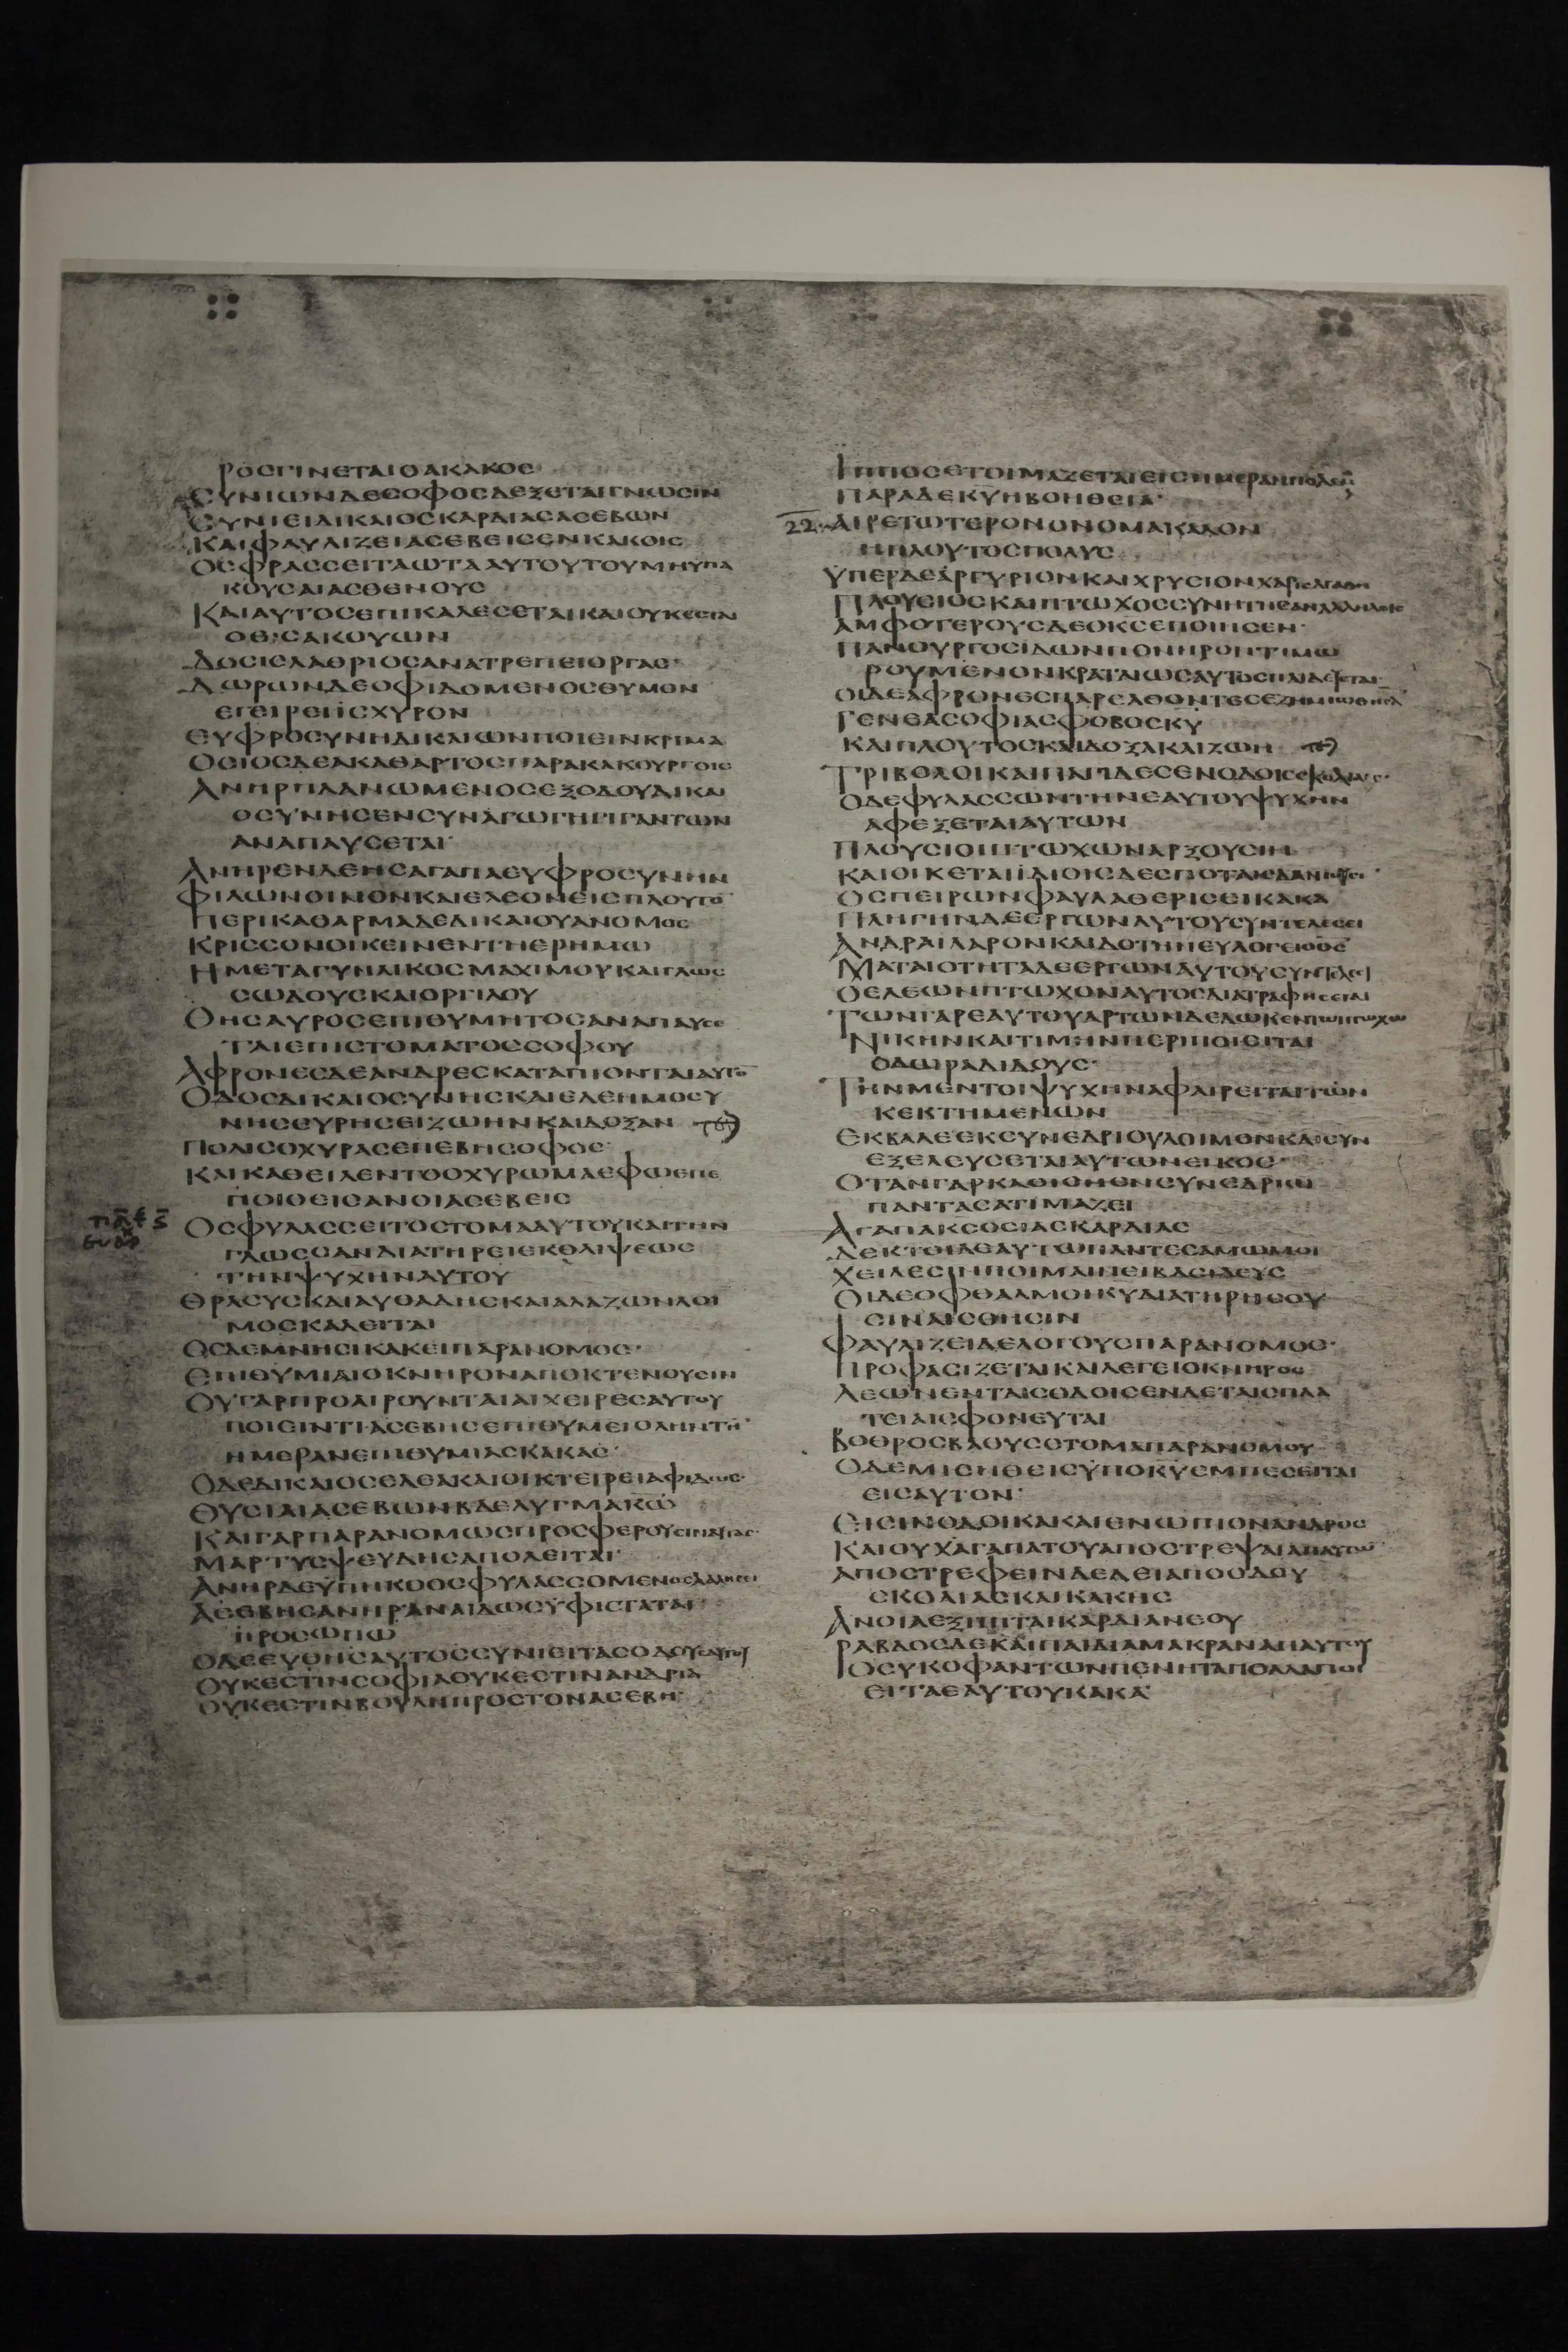 ΡΟCΓΙΝΕΤΑΙΟΑΚΑΚΟC
CΥΝΙΩΝΔΕCΟΦΟCΔΕΞΕΤΑΙΓΝΩCΙΝ
CΥΝΙΕΙΔΙΚΑΙΟCΚΑΡΔΙΑCΑCΕΒΩΝ
ΚΑΙΦΑΥΛΙΖΕΙΑCΕΒΕΙCΕΝΚΑΚΟΙC
ΟCΦΡΑCCΕΙΤΑΩΤΑΑΥΤΟΥΤΟΥΜΗΥΠΑ
ΚΟΥCΑΙΑCΘΕΝΟΥC
ΚΑΙΑΥΤΟCΕΠΙΚΑΛΕCΕΤΑΙΚΑΙΟΥΚΕCΤΑΙ
ΟΕΙCΑΚΟΥΩΝ
ΔΟCΙCΛΑΘΡΙΟCΑΝΑΤΡΕΠΕΙΟΡΓΑC
ΔΩΡΩΝΔΕΟΦΙΔΟΜΕΝΟCΘΥΜΟΝ
ΕΓΕΙΡΕΙΙCΧΥΡΟΝ
ΕΥΦΡΟCΥΝΗΔΙΚΑΙΩΝΠΟΙΕΙΝΚΡΙΜΑ
ΟCΙΟCΔΕΑΚΑΘΑΡΤΟCΠΑΡΑΚΑΚΟΥΡΓΟΙC
ΑΝΗΡΠΛΑΝΩΜΕΝΟCΕΞΟΔΟΥΔΙΚΑΙ
ΟCΥΝΗCΕΝCΥΝΑΓΩΓΗΓΙΓΑΝΤΩΝ
ΑΝΑΠΑΥCΕΤΑΙ
ΑΝΗΡΕΝΔΕΗCΑΓΑΠΑΕΥΦΡΟCΥΝΗΝ
ΦΙΛΩΝΟΙΝΟΝΚΑΙΕΛΕΟΝΕΙCΠΛΟΥΤΟ̅
ΠΕΡΙΚΑΘΑΡΜΑΔΕΔΙΚΑΙΟΥΑΝΟΜΟC
ΚΡΙCCΟΝΟΙΚΕΙΝΕΝΤΗΕΡΗΜΩ
ΗΜΕΤΑΓΥΝΑΙΚΟCΜΑΧΙΜΟΥΚΑΙΓΛΩC
CΩΔΟΥCΚΑΙΟΡΓΙΛΟΥ
ΘΗCΑΥΡΟCΕΠΙΘΥΜΗΤΟCΑΝΑΠΑΥCΕ
ΤΑΙΕΠΙCΤΟΜΑΤΟCCΟΦΟΥ
ΑΦΡΟΝΕCΔΕΑΝΔΡΕCΚΑΤΑΠΙΟΝΤΑΙΑΥΤΟ̅
ΟΔΟCΔΙΚΑΙΟCΥΝΗCΚΑΙΕΛΕΗΜΟCΥ
ΝΗCΕΥΡΗCΕΙΖΩΗΝΚΑΙΔΟΞΑΝ
ΠΟΛΙCΟΧΥΡΑCΕΠΕΒΗCΟΦΟC
ΚΑΙΚΑΘΕΙΛΕΝΤΟΟΧΥΡΩΜΑΕΦΩΕΠΕ
ΠΟΙΘΕΙCΑΝΟΙΑCΕΒΕΙC
ΟCΦΥΛΑCCΕΙΤΟCΤΟΜΑΑΥΤΟΥΚΑΙΤΗΝ
ΓΛΩCCΑΝΔΙΑΤΗΡΕΙΕΚΘΛΙΨΕΩC
ΤΗΝΨΥΧΗΝΑΥΤΟΥ
ΘΡΑCΥCΚΑΙΑΥΘΑΔΗCΚΑΙΑΛΑΖΩΝΛΟΙ
ΜΟCΚΑΛΕΙΤΑΙ
ΟCΔΕΜΝΗCΙΚΑΚΕΙΠΑΡΑΝΟΜΟC
ΕΠΙΘΥΜΙΑΙΟΚΝΗΡΟΝΑΠΟΚΤΕΝΟΥCΙΝ
ΟΥΓΑΡΠΡΟΑΙΡΟΥΝΤΑΙΑΙΧΕΙΡΕCΑΥΤΟΥ
ΠΟΙΕΙΝΤΙ·ΑCΕΒΗCΕΠΙΘΥΜΕΙΟΛΗΝΤΗ̅
ΗΜΕΡΑΝΕΠΙΘΥΜΙΑCΚΑΚΑC
ΟΔΕΔΙΚΑΙΟCΕΛΕΑΚΑΙΟΙΚΤΕΙΡΕΙΑΦΙΔΩC
ΘΥCΙΑΙΑCΕΒΩΝΒΔΕΛΥΓΜΑΚΩ̅
ΚΑΙΓΑΡΠΑΡΑΝΟΜΩCΠΡΟCΦΕΡΟΥCΙΝΑΥΤΑC
ΜΑΡΤΥCΨΕΥΔΗCΑΠΟΛΕΙΤΑΙ
ΑΝΗΡΔΕΥΠΗΚΟΟCΦΥΛΑCCΟΜΕΝΟCΛΑΛΗCΕΙ
ΑCΕΒΗCΑΝΗΡΑΝΑΙΔΩCΥΦΙCΤΑΤΑΙ
ΠΡΟCΩΠΩ
ΟΔΕΕΥΘΗCΑΥΤΟCCΥΝΙΕΙΤΑCΟΔΟΥCΑΥΤΟΥ
ΟΥΚΕCΤΙΝCΟΦΙΑΟΥΚΕCΤΙΝΑΝΔΡΙΑ
ΟΥΚΕCΤΙΝΒΟΥΛΗΠΡΟCΤΟΝΑCΕΒΗ
ΙΠΠΟCΕΤΟΙΜΑΖΕΤΑΙΕΙCΗΜΕΡΑΝΠΟΛΕΜΟΥ
ΠΑΡΑΔΕΚΥ̅ΗΒΟΗΘΕΙΑ
22 ΑΙΡΕΤΩΤΕΡΟΝΟΝΟΜΑΚΑΛΟΝ
ΗΠΛΟΥΤΟCΠΟΛΥC
ΥΠΕΡΔΕΑΡΓΥΡΙΟΝΚΑΙΧΡΥCΙΟΝΧΑΡΙCΑΓΑΘΗ
ΠΛΟΥCΙΟCΚΑΙΠΤΩΧΟCCΥΝΗΝΤΗCΑΝΑΛΛΗΛΟΙC
ΑΜΦΟΤΕΡΟΥCΔΕΟΚC̅ΕΠΟΙΗCΕΝ
ΠΑΝΟΥΡΓΟCΙΔΩΝΠΟΝΗΡΟΝΤΙΜΩ
ΡΟΥΜΕΝΟΝΚΡΑΤΑΙΩCΑΥΤΟCΠΑΙΔΕΥΕΤΑΙ
ΟΙΔΕΑΦΡΟΝΕCΠΑΡΕΛΘΟΝΤΕCΕΖΗΜΙΩΘΗCΑ̅
ΓΕΝΕΑCΟΦΙΑCΦΟΒΟCΚΥ̅
ΚΑΙΠΛΟΥΤΟCΚΑΙΔΟΞΑΚΑΙΖΩΗ
ΤΡΙΒΟΛΟΙΚΑΙΠΑΓΙΔΕCΕΝΟΔΟΙCCΚΟΛΙΑΙC
ΟΔΕΦΥΛΑCCΩΝΤΗΝΕΑΥΤΟΥΨΥΧΗΝ
ΑΦΕΞΕΤΑΙΑΥΤΩΝ
ΠΛΟΥCΙΟΙΠΤΩΧΩΝΑΡΞΟΥCΙΝ
ΚΑΙΟΙΚΕΤΑΙΙΔΙΟΙCΔΕCΠΟΤΑΙCΔΑΝΙΟΥCΙ
ΟCΠΕΙΡΩΝΦΑΥΛΑΘΕΡΙCΕΙΚΑΚΑ
ΠΛΗΓΗΝΔΕΕΡΓΩΝΑΥΤΟΥCΥΝΤΕΛΕCΕΙ
ΑΝΔΡΑΙΛΑΡΟΝΚΑΙΔΟΤΗΝΕΥΛΟΓΕΙΟΘC̅
ΜΑΤΑΙΟΤΗΤΑΔΕΕΡΓΩΝΑΥΤΟΥCΥΝΤΕΛΕCΕΙ
ΟΕΛΕΩΝΠΤΩΧΟΝΑΥΤΟCΔΙΑΤΡΑΦΗCΕΤΑΙ
ΤΩΝΓΑΡΕΑΥΤΟΥΑΡΤΩΝΔΕΔΩΚΕΝΤΩΠΤΩΧΩ
ΝΙΚΗΝΚΑΙΤΙΜΗΝΠΕΡΙΠΟΙΕΙΤΑΙ
ΟΔΩΡΑΔΙΔΟΥC
ΤΗΝΜΕΝΤΟΙΨΥΧΗΝΑΦΑΙΡΕΙΤΑΙΤΩΝ
ΚΕΚΤΗΜΕΝΩΝ
ΕΚΒΑΛΕΕΚCΥΝΕΔΡΙΟΥΛΟΙΜΟΝΚΑΙCΥΝ
ΕΞΕΛΕΥCΕΤΑΙΑΥΤΩΝΕΙΚΟC
ΟΤΑΝΓΑΡΚΑΘΙCΗΕΝCΥΝΕΔΡΙΩ
ΠΑΝΤΑCΑΤΙΜΑΖΕΙ
ΑΓΑΠΑΚC̅ΟCΙΑCΚΑΡΔΙΑC
ΔΕΚΤΟΙΔΕΑΥΤΩΠΑΝΤΕCΑΜΩΜΟΙ
ΧΕΙΛΕCΙΝΠΟΙΜΑΙΝΕΙΒΑCΙΛΕΥC
ΟΙΔΕΟΦΘΑΛΜΟΙΚΥ̅ΔΙΑΤΗΡΗCΟΥ
CΙΝΑΙCΘΗCΙΝ
ΦΑΥΛΙΖΕΙΔΕΛΟΓΟΥCΠΑΡΑΝΟΜΟC
ΠΡΟΦΑCΙΖΕΤΑΙΚΑΙΛΕΓΕΙΟΚΝΗΡΟC
ΛΕΩΝΕΝΤΑΙCΟΔΟΙCΕΝΔΕΤΑΙCΠΛΑ
ΤΕΙΑΙCΦΟΝΕΥΤΑΙ
ΒΟΘΡΟCΒΑΘΥCCΤΟΜΑΠΑΡΑΝΟΜΟΥ
ΟΔΕΜΙCΗΘΕΙCΥΠΟΚΥ̅ΕΜΠΕCΕΙΤΑΙ
ΕΙCΑΥΤΟΝ
ΕΙCΙΝΟΔΟΙΚΑΚΑΙΕΝΩΠΙΟΝΑΝΔΡΟC
ΚΑΙΟΥΧΑΓΑΠΑΤΟΥΑΠΟCΤΡΕΨΑΙΑΠΑΥΤΩ̅
ΑΠΟCΤΡΕΦΕΙΝΔΕΔΕΙΑΠΟΟΔΟΥ
CΚΟΛΙΑCΚΑΙΚΑΚΗC
ΑΝΟΙΑΕΞΗΠΤΑΙΚΑΡΔΙΑΝΕΟΥ
ΡΑΒΔΟCΔΕΚΑΙΠΑΙΔΙΑΜΑΚΡΑΝΑΠΑΥΤΟΥ
ΟCΥΚΟΦΑΝΤΩΝΠΕΝΗΤΑΠΟΛΛΑΠΟΙ
ΕΙΤΑΕΑΥΤΟΥΚΑΚΑ